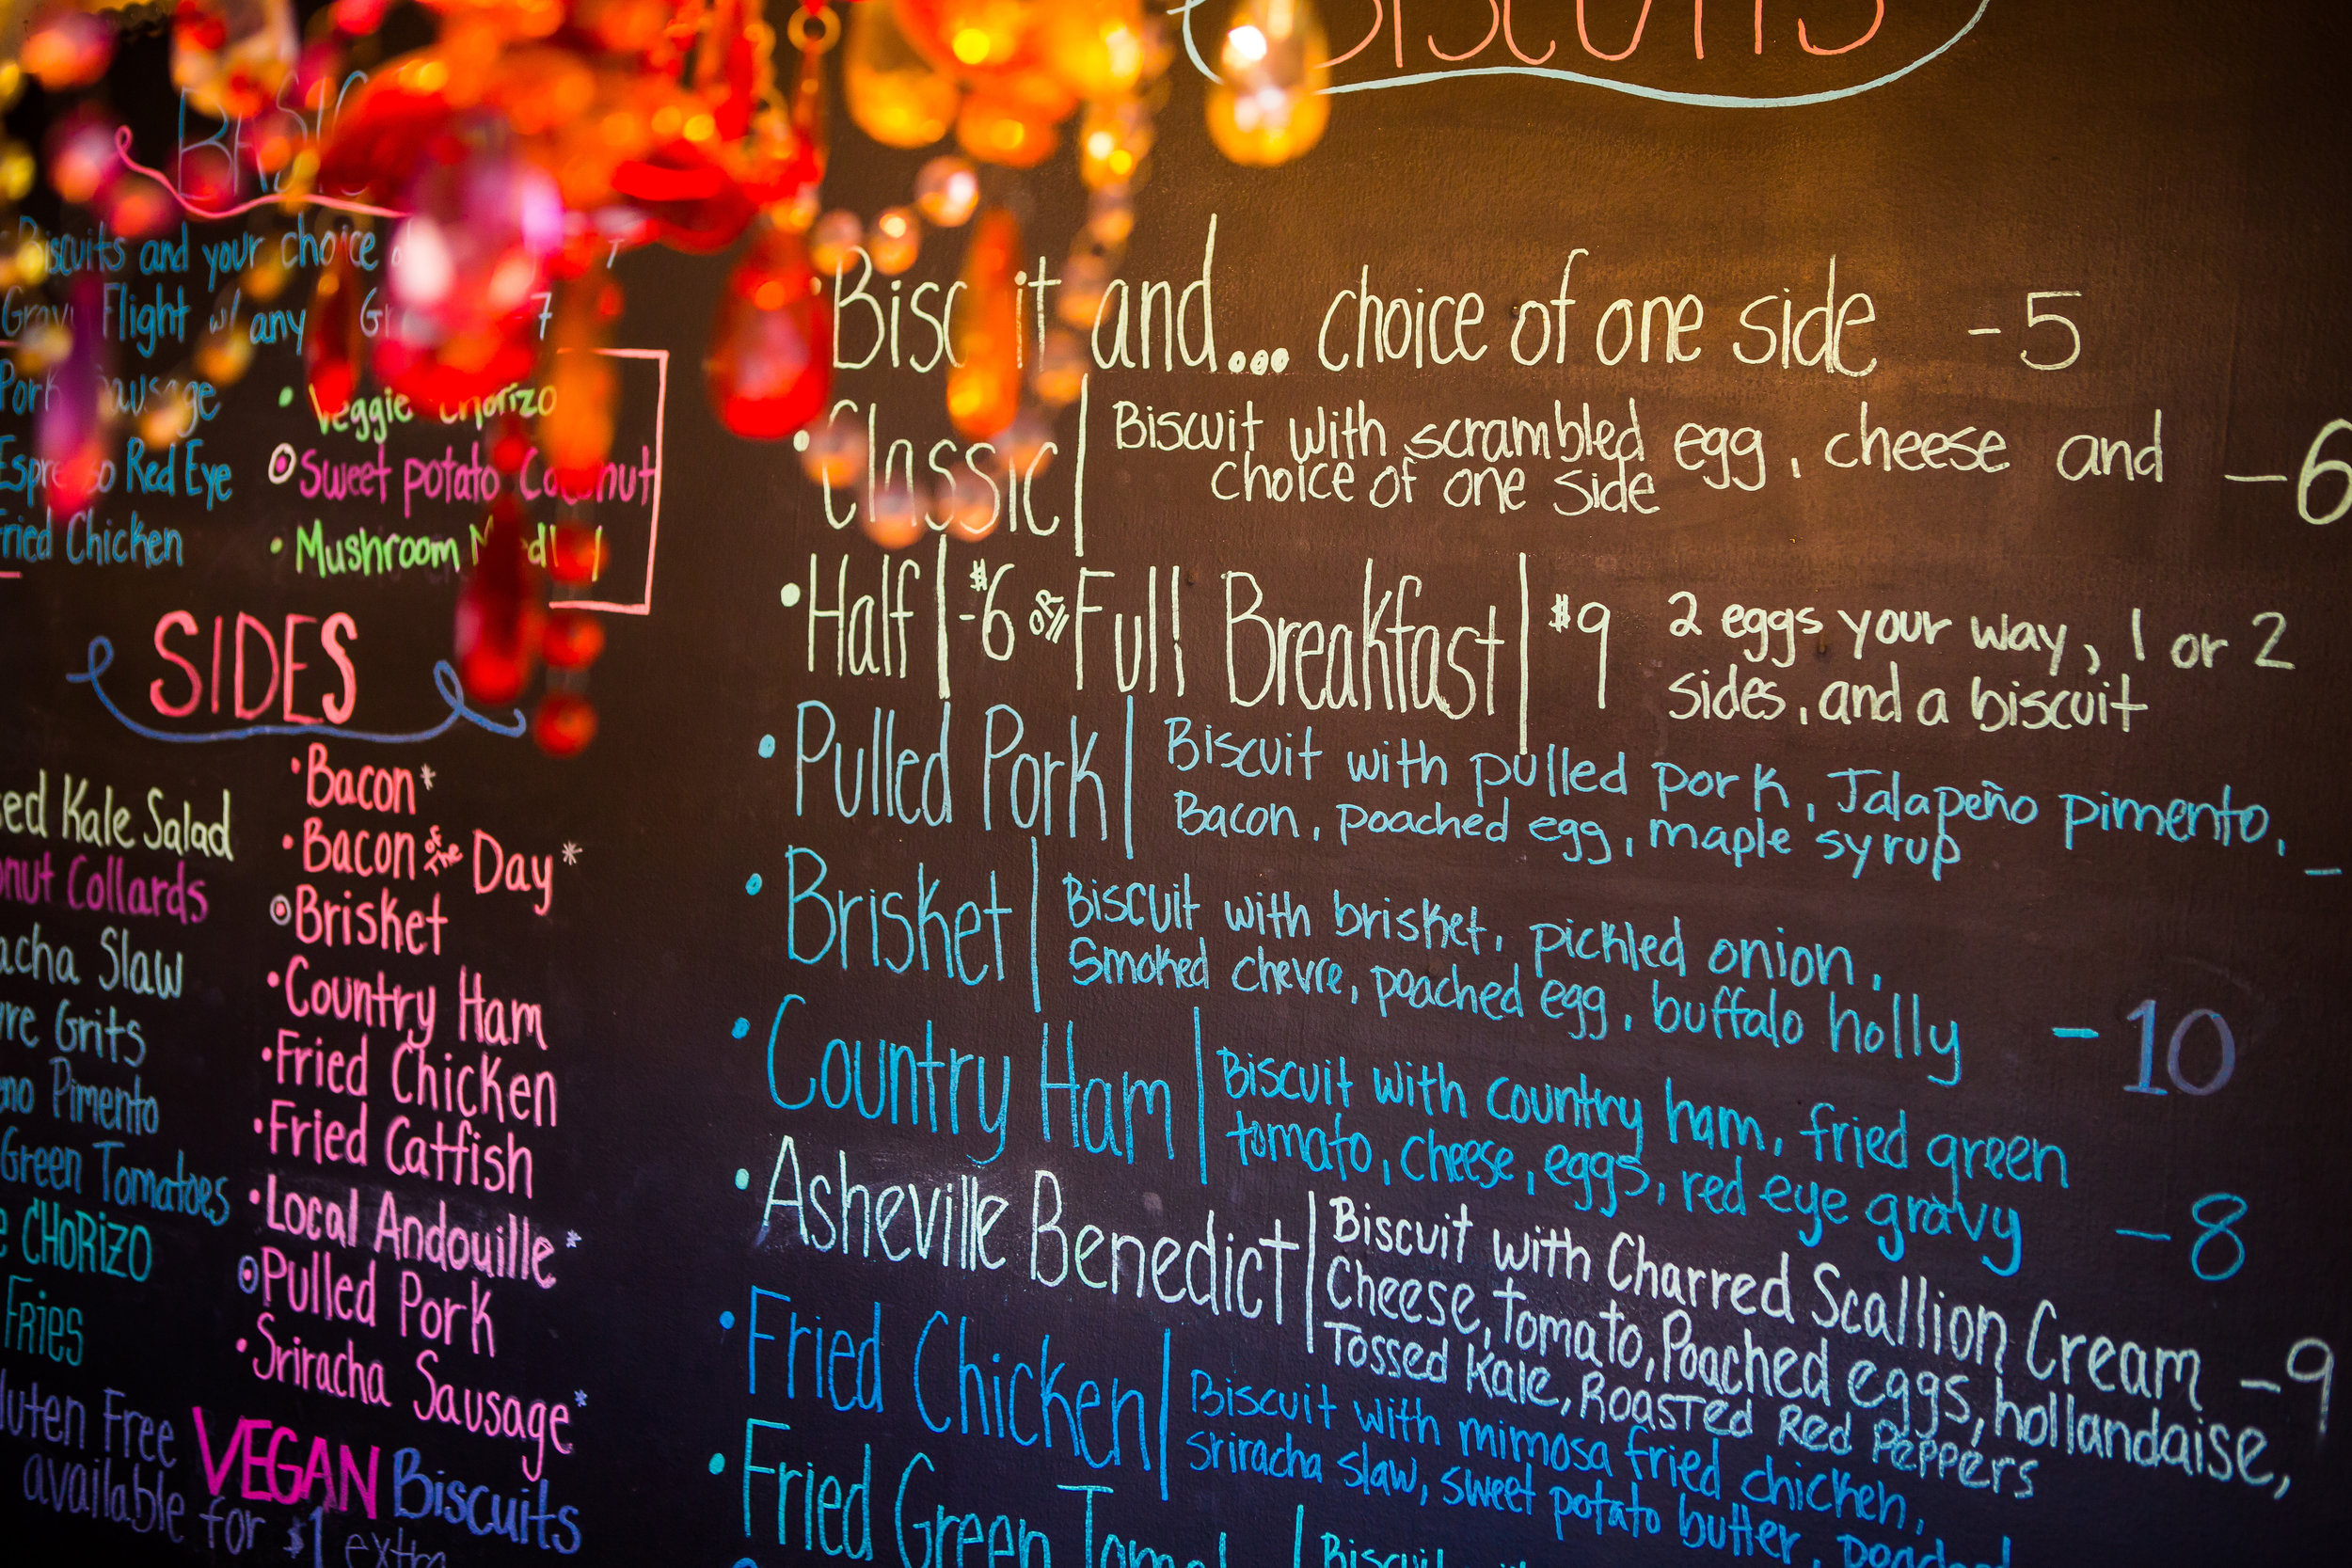 BASIC
Biscuits and your choice
Gravy Flight w/ any 7
Pork Sausage
Espresso Red Eye
Fried Chicken
• Veggie Chorizo
Sweet potato Coconut
• Mushroom Medley
SIDES
Kale Salad
Collards
Slaw
Grits
Pimento
Green Tomatoes
CHORIZO
FRIES
• Bacon*
• Bacon of the Day*
Brisket
• Country Ham
• Fried Chicken
• Fried Catfish
• Local Andouille*
Pulled Pork
• Sriracha Sausage*
Gluten Free VEGAN Biscuits
available for $1 extra
BISCUITS
• Biscuit and... choice of one side -5
• Classic | Biscuit with scrambled egg, cheese and -6
choice of one side
• Half | -$6 OR Full Breakfast | $9 2 eggs your way, 1 or 2
sides, and a biscuit
• Pulled Pork | Biscuit with pulled pork, Jalapeño pimento, -
Bacon, poached egg, maple syrup
• Brisket | Biscuit with brisket, pickled onion,
Smoked chevre, poached egg, buffalo holly -10
• Country Ham | Biscuit with country ham, fried green
tomato, cheese, eggs, red eye gravy -8
• Asheville Benedict | Biscuit with Charred Scallion Cream -9
Cheese, Tomato, Poached eggs, hollandaise,
Tossed Kale, Roasted Red Peppers
• Fried Chicken | Biscuit with mimosa fried chicken,
Sriracha slaw, sweet potato butter, poached
• Fried Green | Biscuit